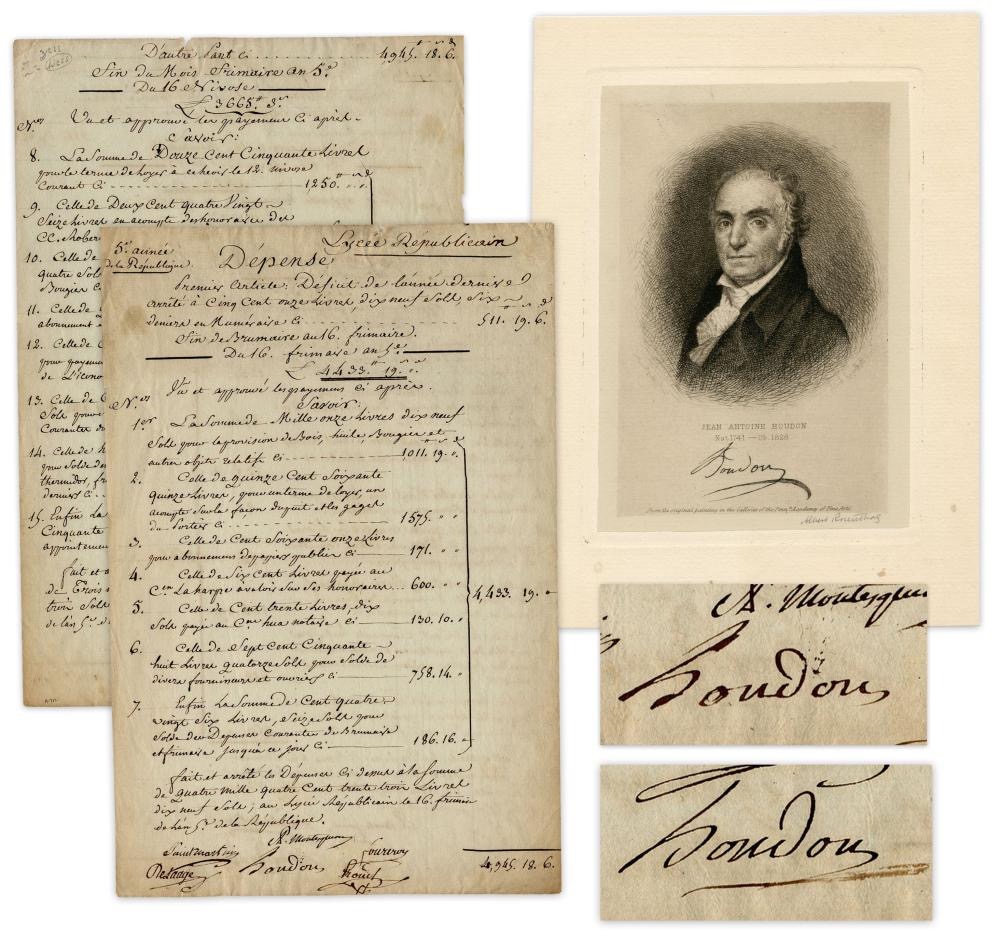 D'autre Part ci . . . . . . . . . . . 4945. 18. 6.
Fin du Mois Frimaire an 5e.
Du 16 Nivose
£ 3665.
Nos. Vu et approuvé les payemens ci après
Savoir:
8. La Somme de Douze Cent Cinquante Livres
pour le terme de Loyer échu le 12. nivose
Courant Ci 1250. " "
9. Celle de Deux Cent quatre Vingt
Seize Livres en acompte des honoraires des
CC.
10. Celle de
quatre Sols
Bougies
11. Celle de
abonnement
12. Celle de
pour payement
de L'
13. Celle de
Sols pour
Courantes
14. Celle de
pour Solde
thermidor,
deniers ci
15. Enfin La
Cinquante
appointemens
fait et
de Trois
trois Sols
de l'an 5e.
5e. année
de la République.
Lycée Républicain
Dépense
Premier article: Déficit de l'année dernière
arrêté à Cinq Cent onze Livres, dix neuf Sols, Six
deniers en Numéraire Ci 511. 19. 6.
Fin de Brumaire au 16. frimaire.
Du 16. frimaire an 5e.
£ 4433. 19.
Vu et approuvé les payemens ci après.
Nos. Savoir:
1er. La Somme de Mille onze Livres dix neuf
Sols pour la provision de Bois, huile Bougies et
autres objets relatifs Ci 1011. 19. "
2. Celle de quinze Cent Soixante
quinze Livres, pour un terme de loyer, un
acompte Sur la façon du puit et les gages
du Portier Ci 1575. " "
3. Celle de Cent Soixante onze Livres
pour abonnemens de papiers publics Ci 171. " "
4. Celle de Six Cent Livres payée au
Cen. La harpe a valoir Sur Ses honoraires . . . 600. " "
5. Celle de Cent trente Livres, dix
Sols payée au Cen. hua notaire Ci 130. 10. "
4,433. 19. "
6. Celle de Sept Cent Cinquante
huit Livres quatorze Sols pour Solde de
divers fournisseurs et ouvriers Ci 758. 14. "
7. Enfin La Somme de Cent quatre
vingt Six Livres, Seize Sols pour
Solde des Depenses Courantes de Brumaire
et frimaire jusqu'a ce jour Ci 186. 16. "
fait et arrêté les Dépenses Ci dessus à la Somme
de quatre mille quatre Cent trente trois Livres
dix neuf Sols; au Lycée Républicain le 16. frimaire
de l'an 5e. de la République.
A. Montesquiou
houdon
4,945. 18. 6.
JEAN ANTOINE HOUDON
Nat. 1741 — Ob. 1828
houdon
From the original painting in the Galleries of the Penna Academy of Fine Arts
Albert Rosenthal
A. Montesquiou
houdon
houdon